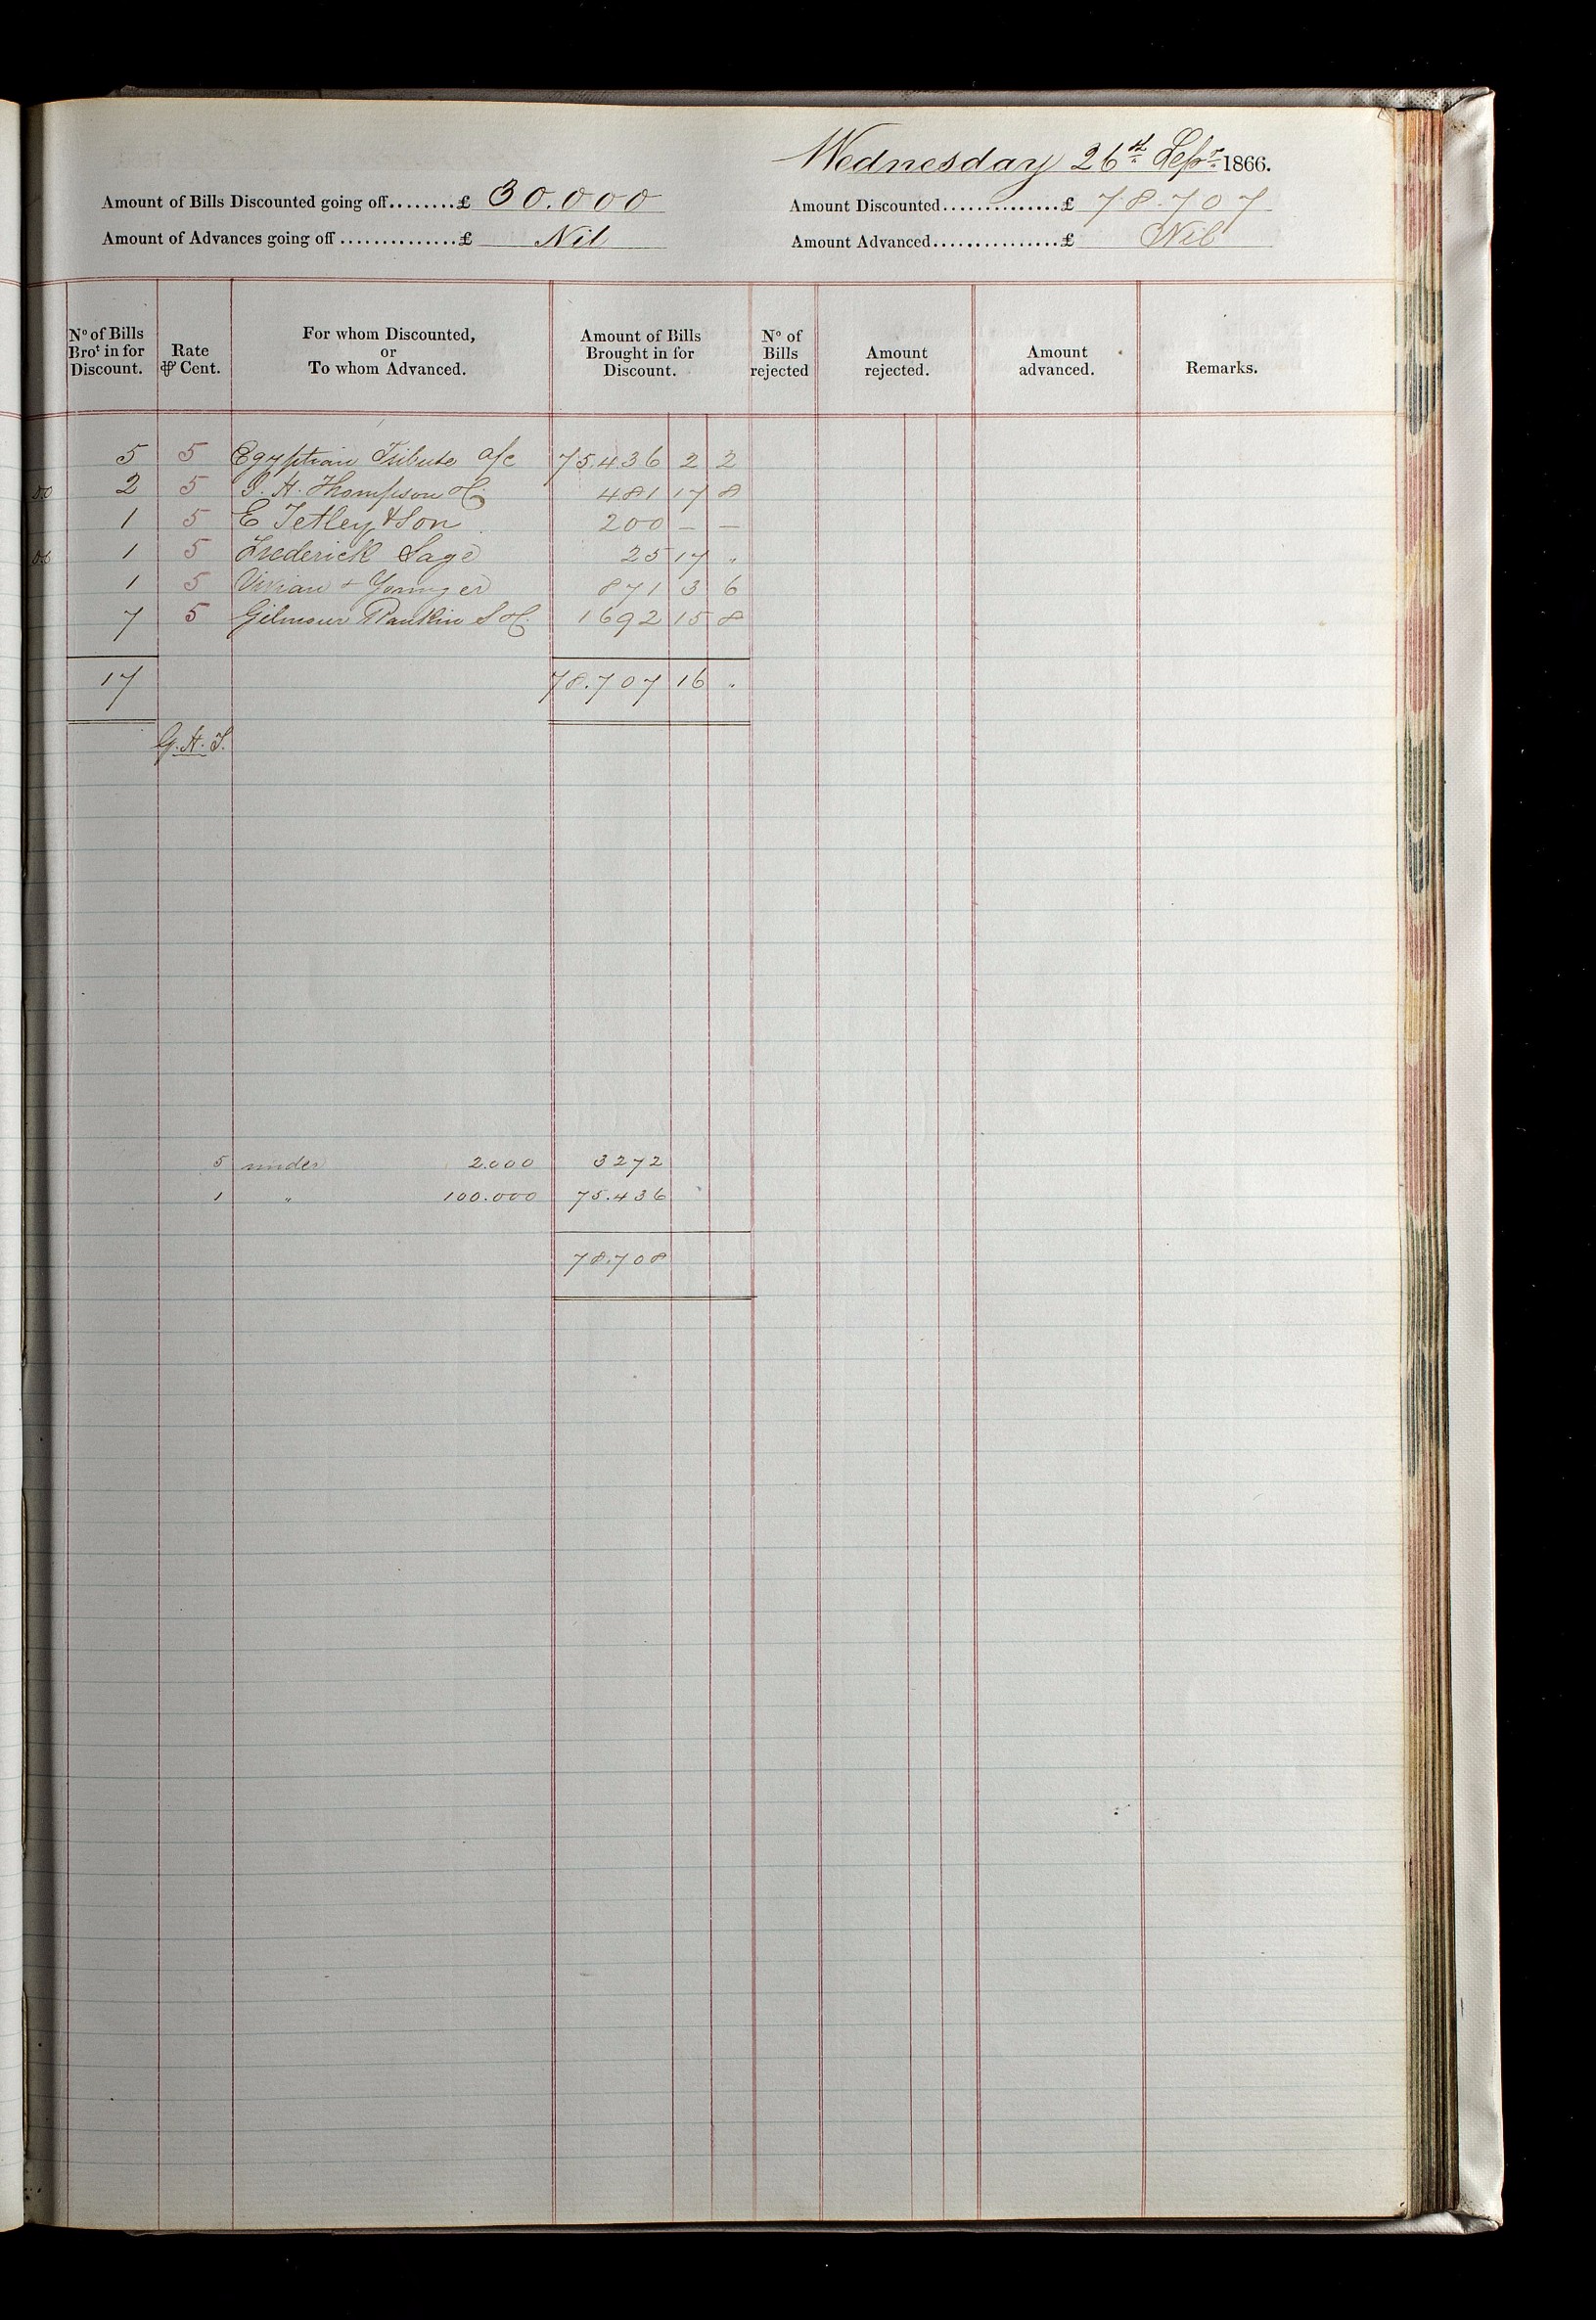 Wednesday 26th Sepr. 1866.
Amount of Bills Discounted going off........£ 30.000
Amount Discounted..............£ 78.707
Amount of Advances going off..............£ Nil
Amount Advanced................£ Nil
No of Bills Brot in for Discount. Rate ⅌ Cent. For whom Discounted, or To whom Advanced. Amount of Bills Brought in for Discount. No of Bills rejected Amount rejected. Amount advanced. Remarks.
5 5 Egyptian Tribute a/c 75.436 2 2
2 5 Thompson 481 17 8
1 5 E Tetley & Son 200 - -
1 5 Frederick Sage 25 17 "
1 5 Vivian + Younger 871 3 6
7 5 Gilmour Rankin S & Co. 1692 15 8
17 78.707 16 "
5 under 2.000 3272
1 " 100.000 75.436
78.708